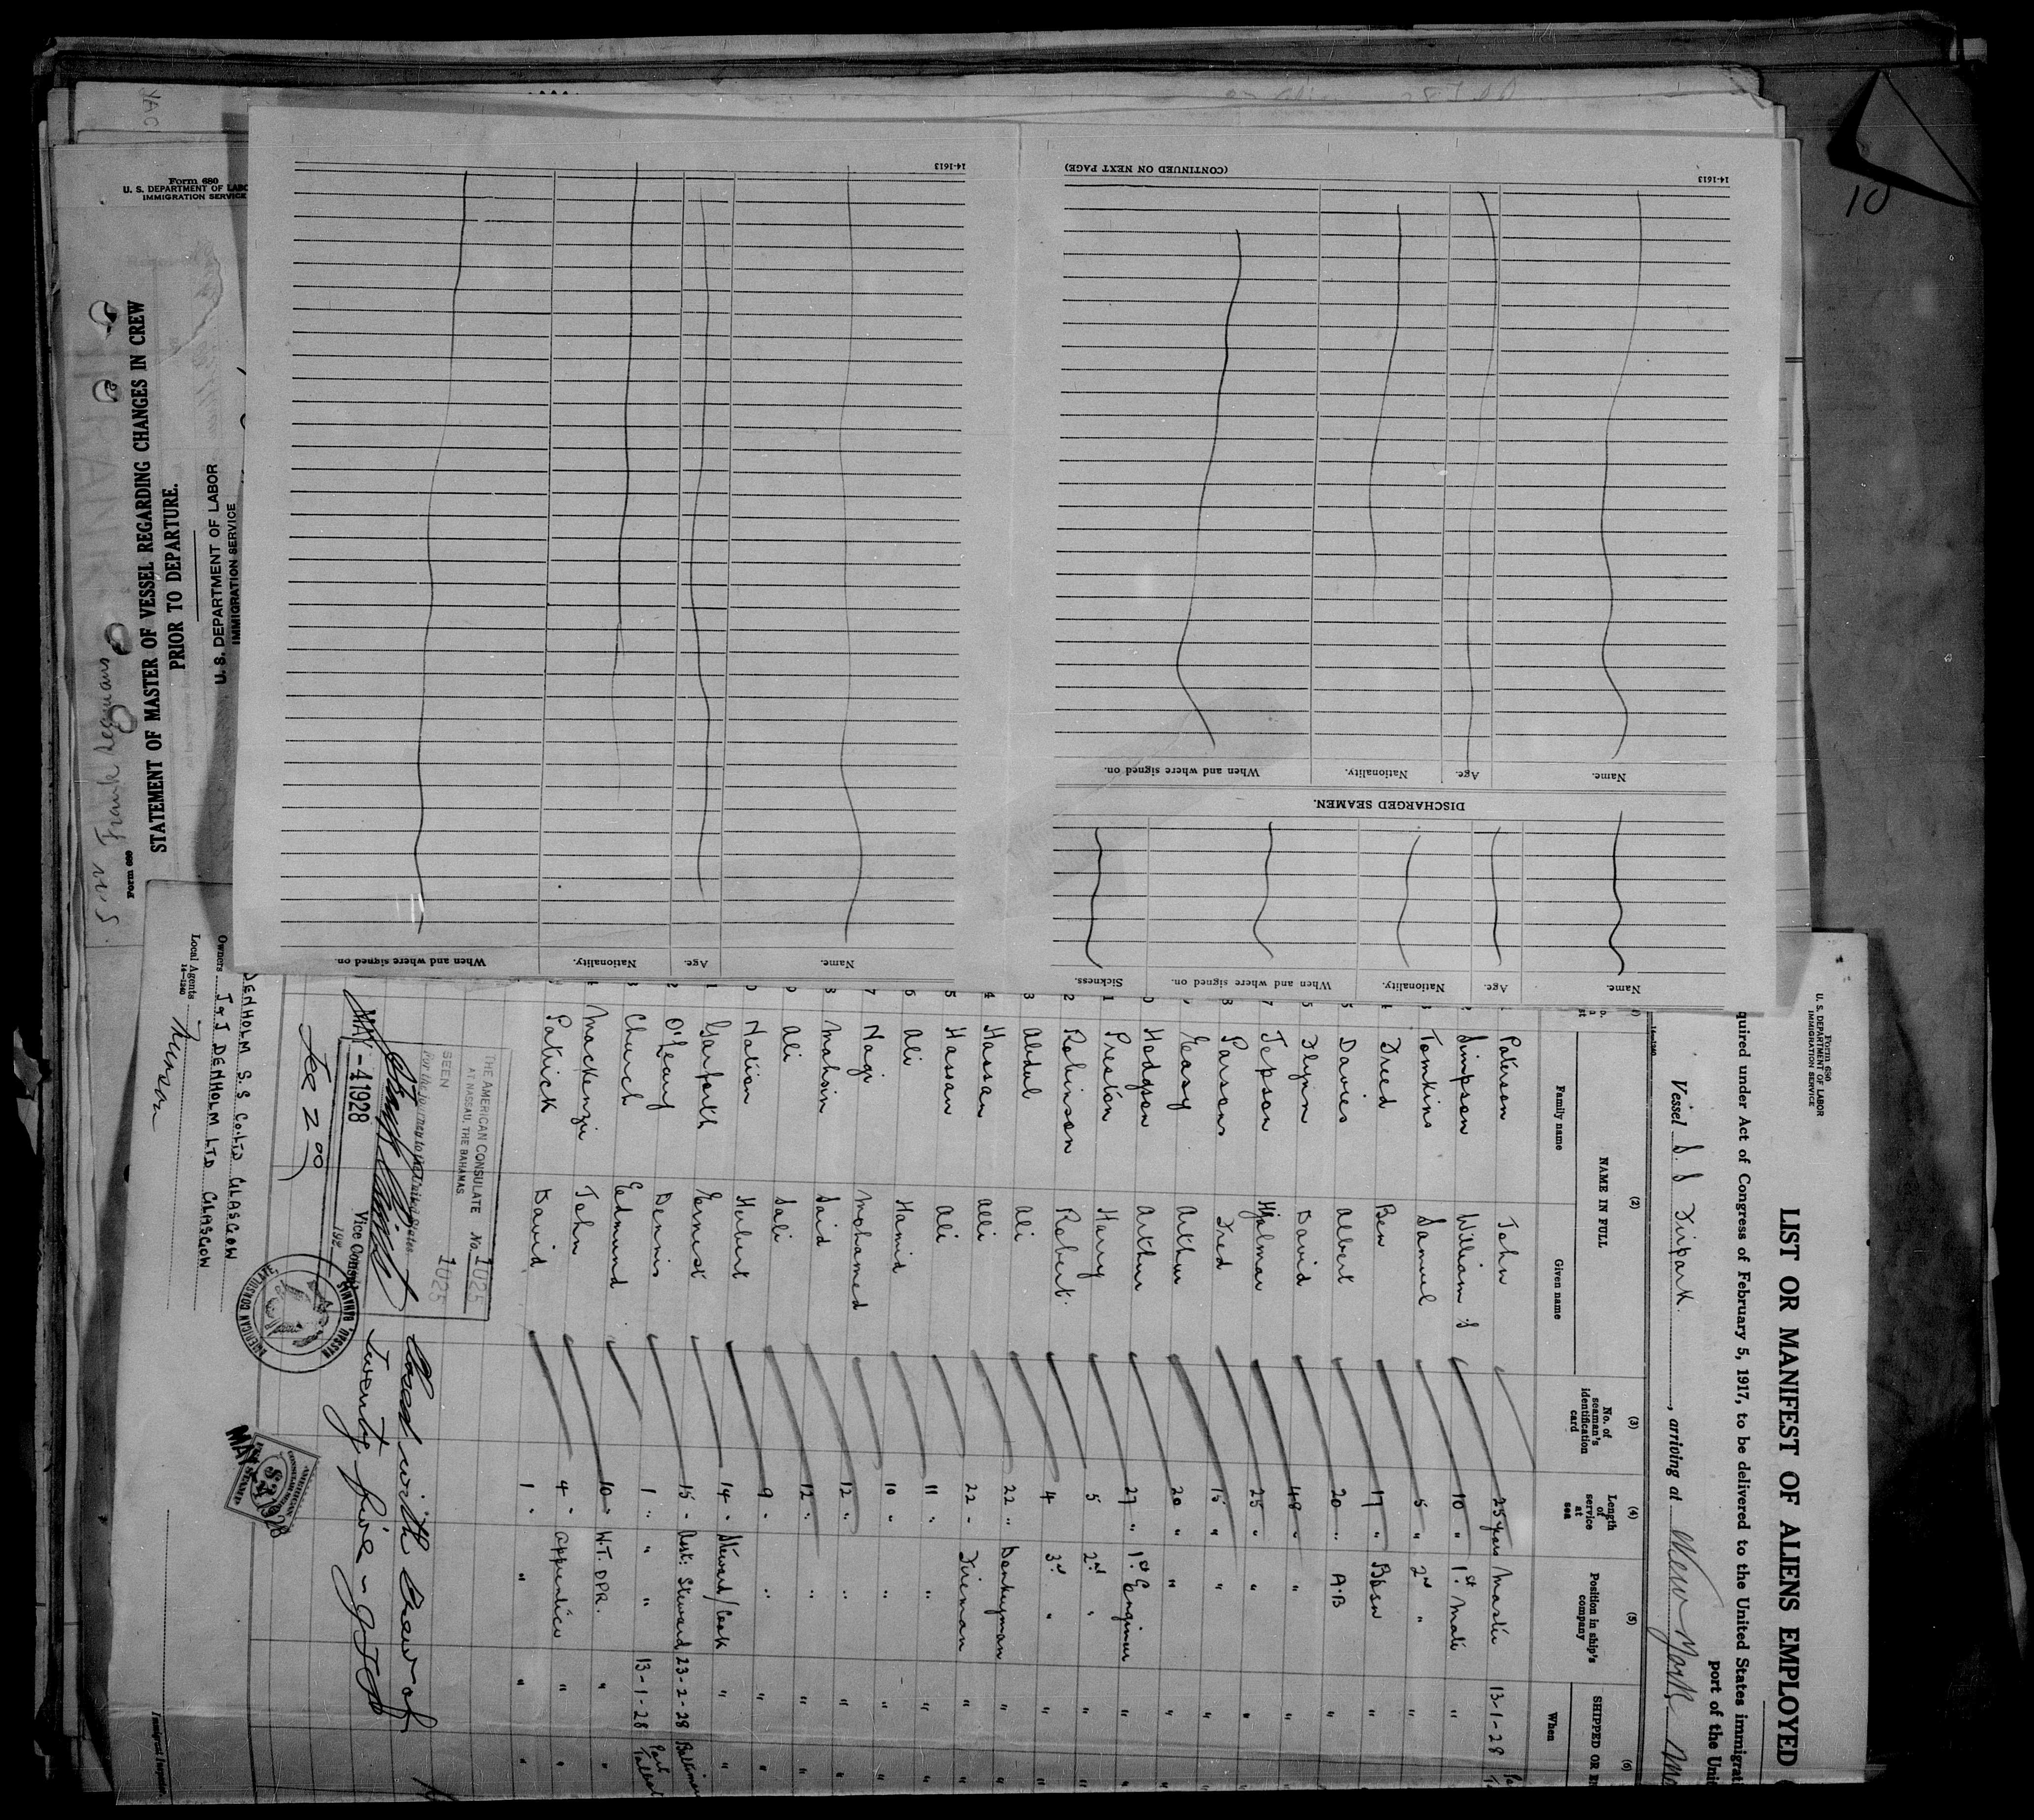 10
Form 680
U. S. DEPARTMENT OF LABOR
IMMIGRATION SERVICE
STATEMENT OF MASTER OF VESSEL REGARDING CHANGES IN CREW
PRIOR TO DEPARTURE.
U. S. DEPARTMENT OF LABOR
IMMIGRATION SERVICE
Form 680
Name. Age. Nationality. When and where signed on. Sickness.
DISCHARGED SEAMEN.
Name. Age. Nationality. When and where signed on.
14-1613
(CONTINUED ON NEXT PAGE)
Name. Age. Nationality. When and where signed on.
14-1613
Form 680
U. S. DEPARTMENT OF LABOR
IMMIGRATION SERVICE
LIST OR MANIFEST OF ALIENS EMPLOYED
quired under Act of Congress of February 5, 1917, to be delivered to the United States immigrat
port of the Unit
Vessel S. S Firpark, arriving at New York
(2) (3) (4) (5) (6)
NAME IN FULL
Family name Given name
No. of seaman's identification card
Length of service at sea
Position in ship's company
SHIPPED OR E
When
Paterson John 25 years Master 13-1-28
Simpson William S 10 " 1st Mate "
Tomkins Samuel 5 " 2nd " "
Dried Ben 17 " Bosn "
Davies Albert 20 " A.B "
Flynn David 48 " " "
Jepson Hjalmar 25 " " "
Parsons Fred 15 " " "
Easy Arthur 20 " " "
Hodgson Arthur 27 " 1st Engineer "
Preston Harry 5 " 2nd " "
Robinson Robert 4 " 3rd " "
Abdul Ali 22 " Donkeyman "
Hassan Alli 22 " Fireman "
Hassan Ali 11 " " "
Ali Hamid 10 " " "
Nagi Mohamed 12 " " "
Mahsin Said 12 " " "
Ali Sali 9 " " "
Nation Herbert 14 " Steward/Cook "
Garforth Ernest 15 " Asst. Steward 23-2-28 Baltimore
O'Leary Dennis 1 " " 13-1-28 Port Talbot
Church Edmund 10 " W.T. OPR. " "
Mackenzie John 4 " Apprentice " "
Patrick David 1 " " " "
THE AMERICAN CONSULATE
AT NASSAU, THE BAHAMAS.
No. 1025
1025
SEEN
For the journey to the United States
Vice Consul
MAY - 4 1928
192
Fee 2 00
Closed with Crew of
Twenty five -
AMERICAN CONSULATE
NASSAU, BAHAMAS
DENHOLM S. S CO. LTD GLASGOW
Owners J & J DENHOLM LTD GLASGOW
Local Agents Munson
14-1240
Immigrant Inspector.